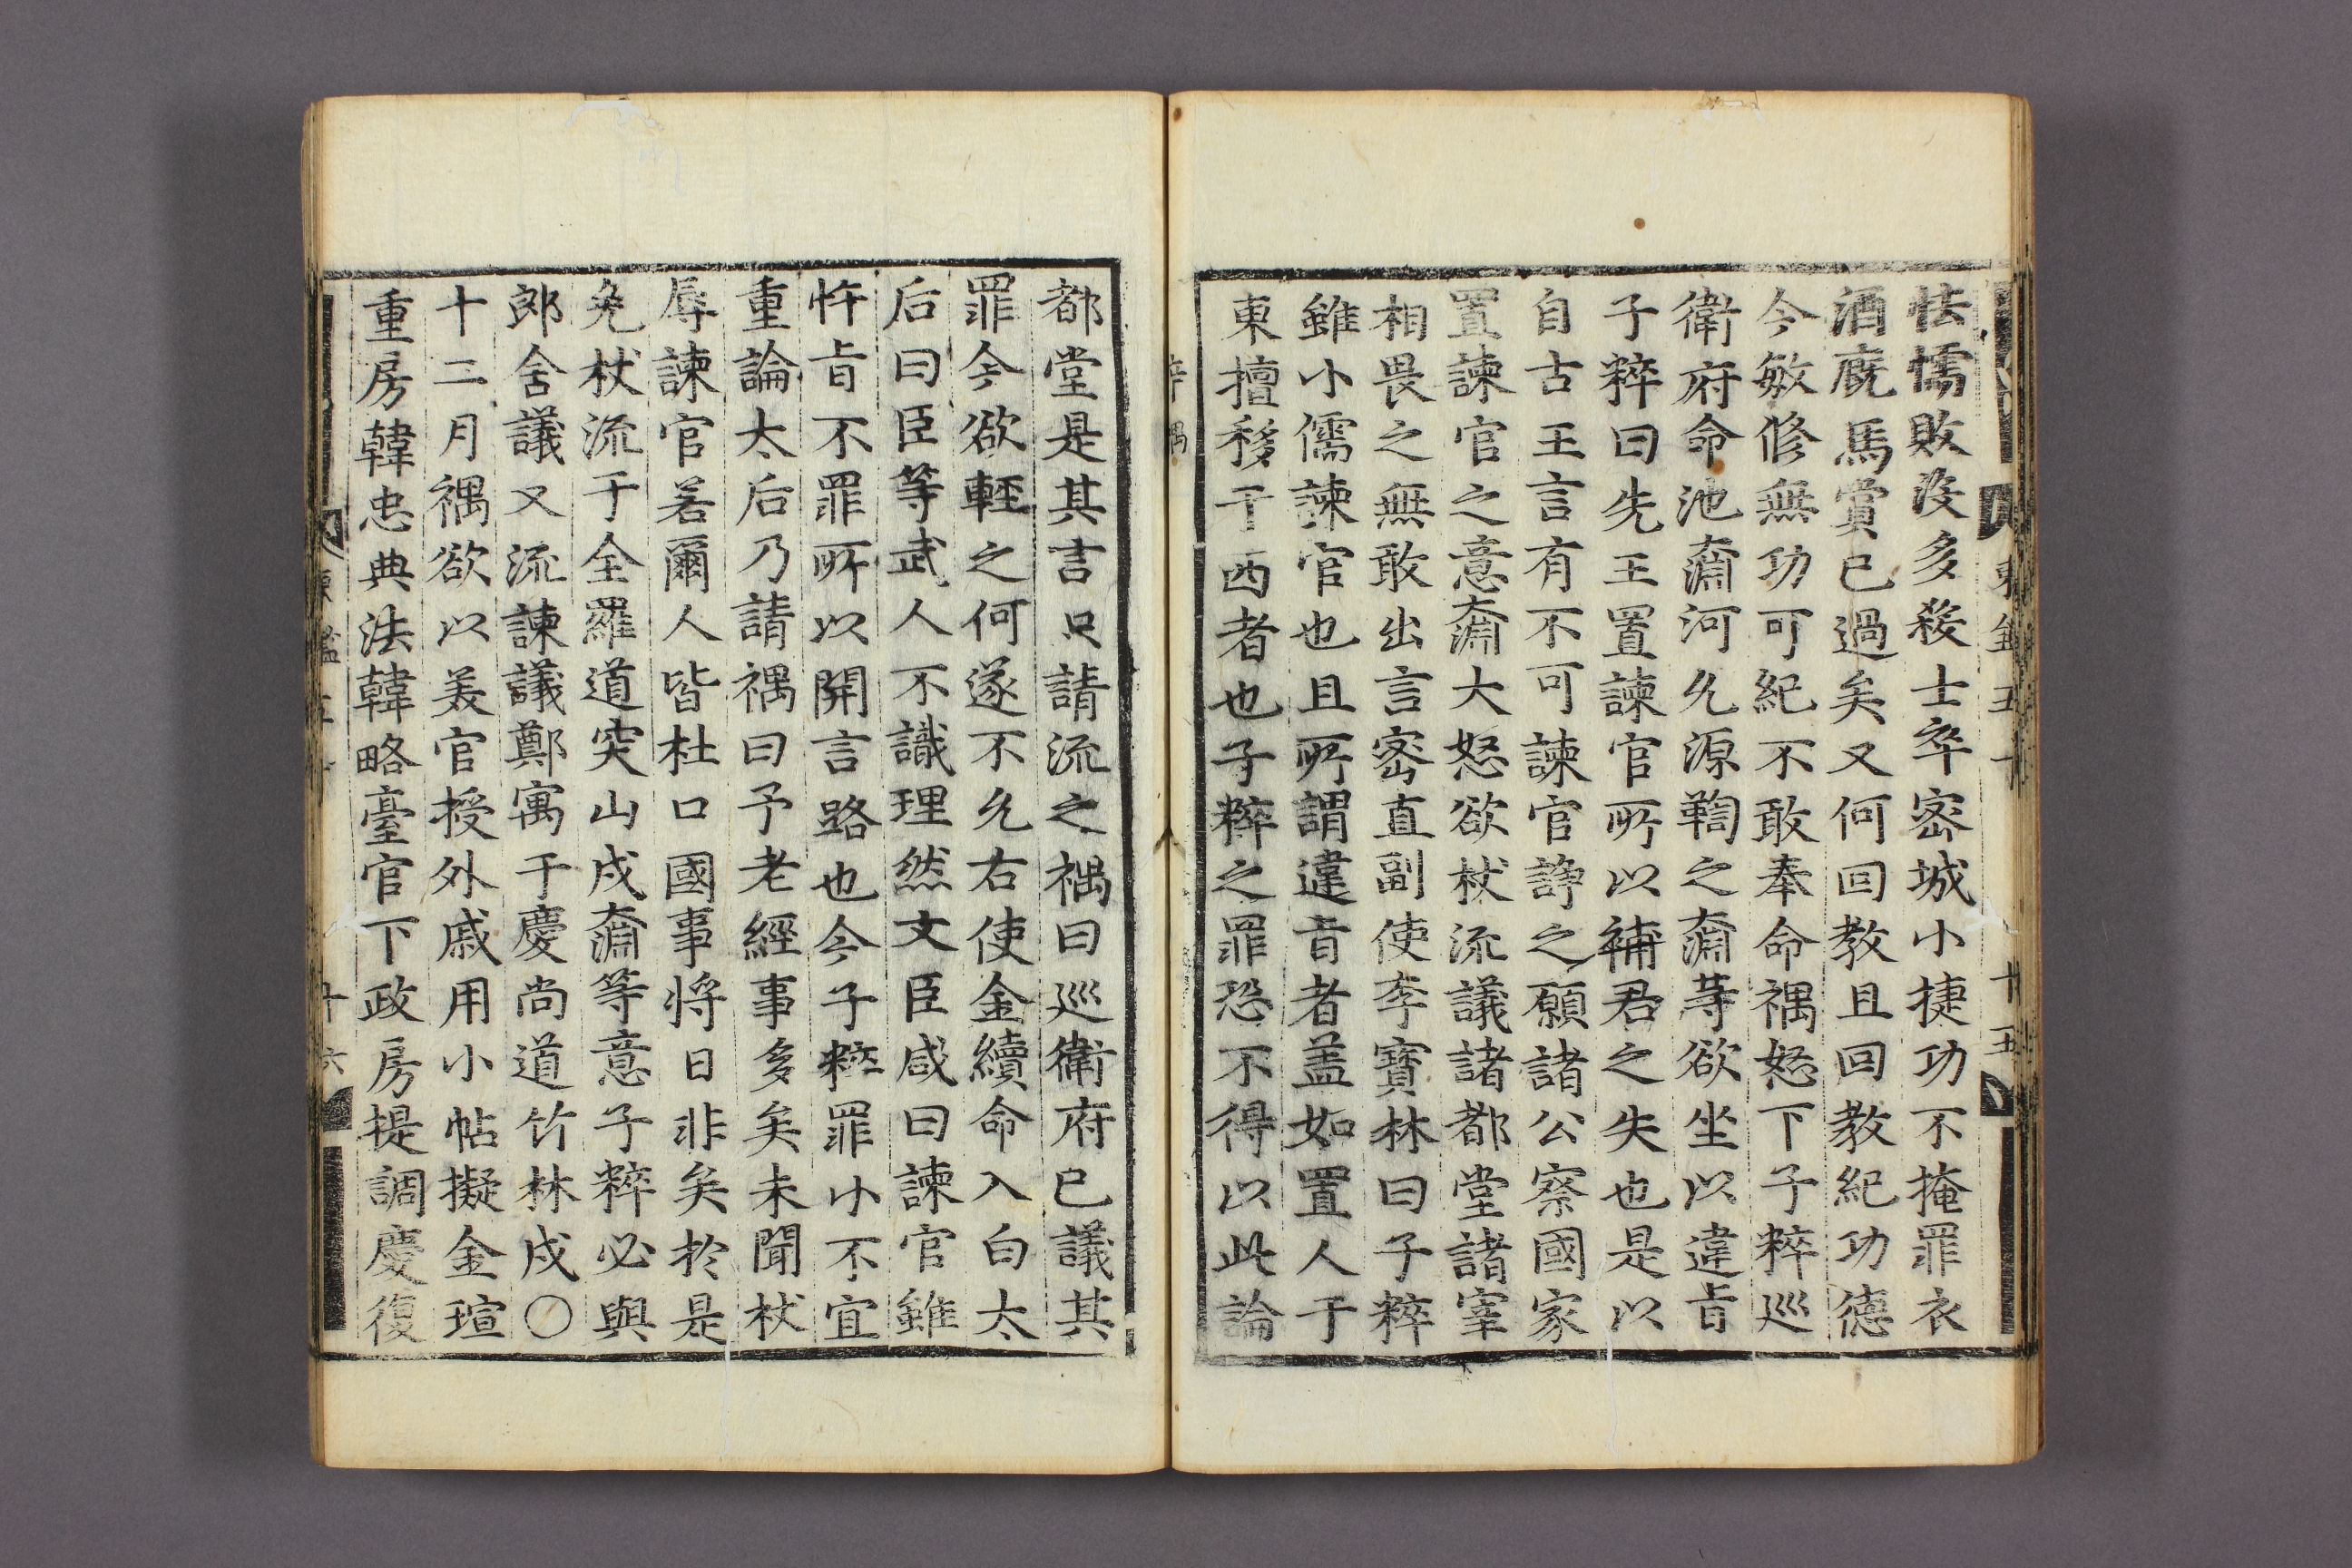 怯懦敗沒多殺士卒密城小捷功不掩罪衣
酒廐馬賞已過矣又何回教且回教紀功德
今敏修無功可紀不敢奉命禑怒下子粹巡
衛府命池奫河允源鞫之奫等欲坐以違旨
子粹曰先王置諫官所以補君之失也是以
自古王言有不可諫官諍之願諸公察國家
置諫官之意奫大怒欲杖流議諸都堂諸宰
相畏之無敢出言密直副使李寶林曰子粹
雖小儒諫官也且所謂違旨者盖如置人于
東擅移于西者也子粹之罪恐不得以此論
都堂是其言只請流之禑曰巡衛府已議其
罪今欲輕之何遂不允右使金續命入白太
后曰臣等武人不識理然文臣咸曰諫官雖
忤旨不罪所以開言路也今子粹罪小不宜
重論太后乃請禑曰予老經事多矣未聞杖
辱諫官若爾人皆杜口國事將日非矣於是
免杖流于全羅道突山戍奫等意子粹必與
郎舍議又流諫議鄭寓于慶尚道竹林戍〇
十二月禑欲以美官授外戚用小帖擬金瑄
重房韓忠典法韓略臺官下政房提調慶復